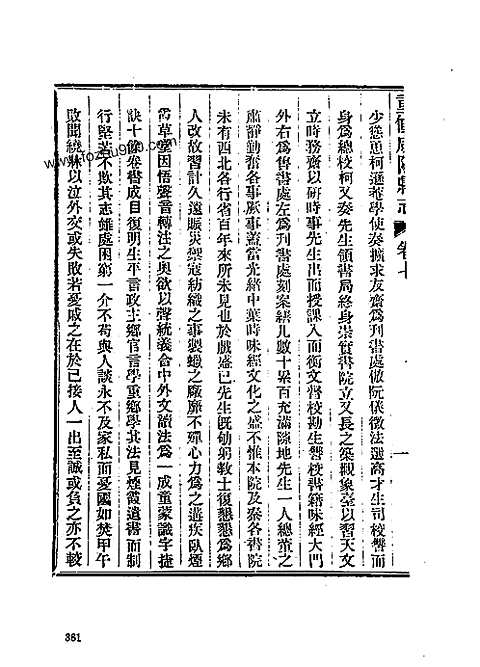 重修咸陽縣志 卷七 一
少慫恿柯遜菴學使奏擴求友齋爲刊書處倣阮儀徵法選高才生司校讐而
身爲總校柯又奏先生領書局終身崇實書院立又長之築觀象臺以習天文
立時務齋以研時事先生出而授課入而衡文督校勘生讐校書籍味經大門
外右爲售書處左爲刊書處刻案緒几數十案百充滿隙地先生一人總董之
肅靜勤奮各事厥事蓋當光緒中葉時味經文化之盛不惟本院及秦各書院
未有西北各行省百年來所未見也於戲盛已先生旣劬躬敎士復懇懇爲鄉
人改故習計久遠賑災禦寇紡織之事製蠟之廠靡不殫心力爲之遘疾臥煙
霞草堂因悟聲音轉注之奧欲以聲統義合中外文讀法爲一成童蒙識字捷
訣十餘卷書成目復明生平言政主鄉官言學重鄉學其法見煙霞遺書而制
行堅苦不欺其志雖處困窮一介不苟與人談永不及家私而憂國如焚甲午
敗聞繞牀以泣外交或失敗若憂戚之在於己接人一出至誠或負之亦不較
361
www.fozhu920.com